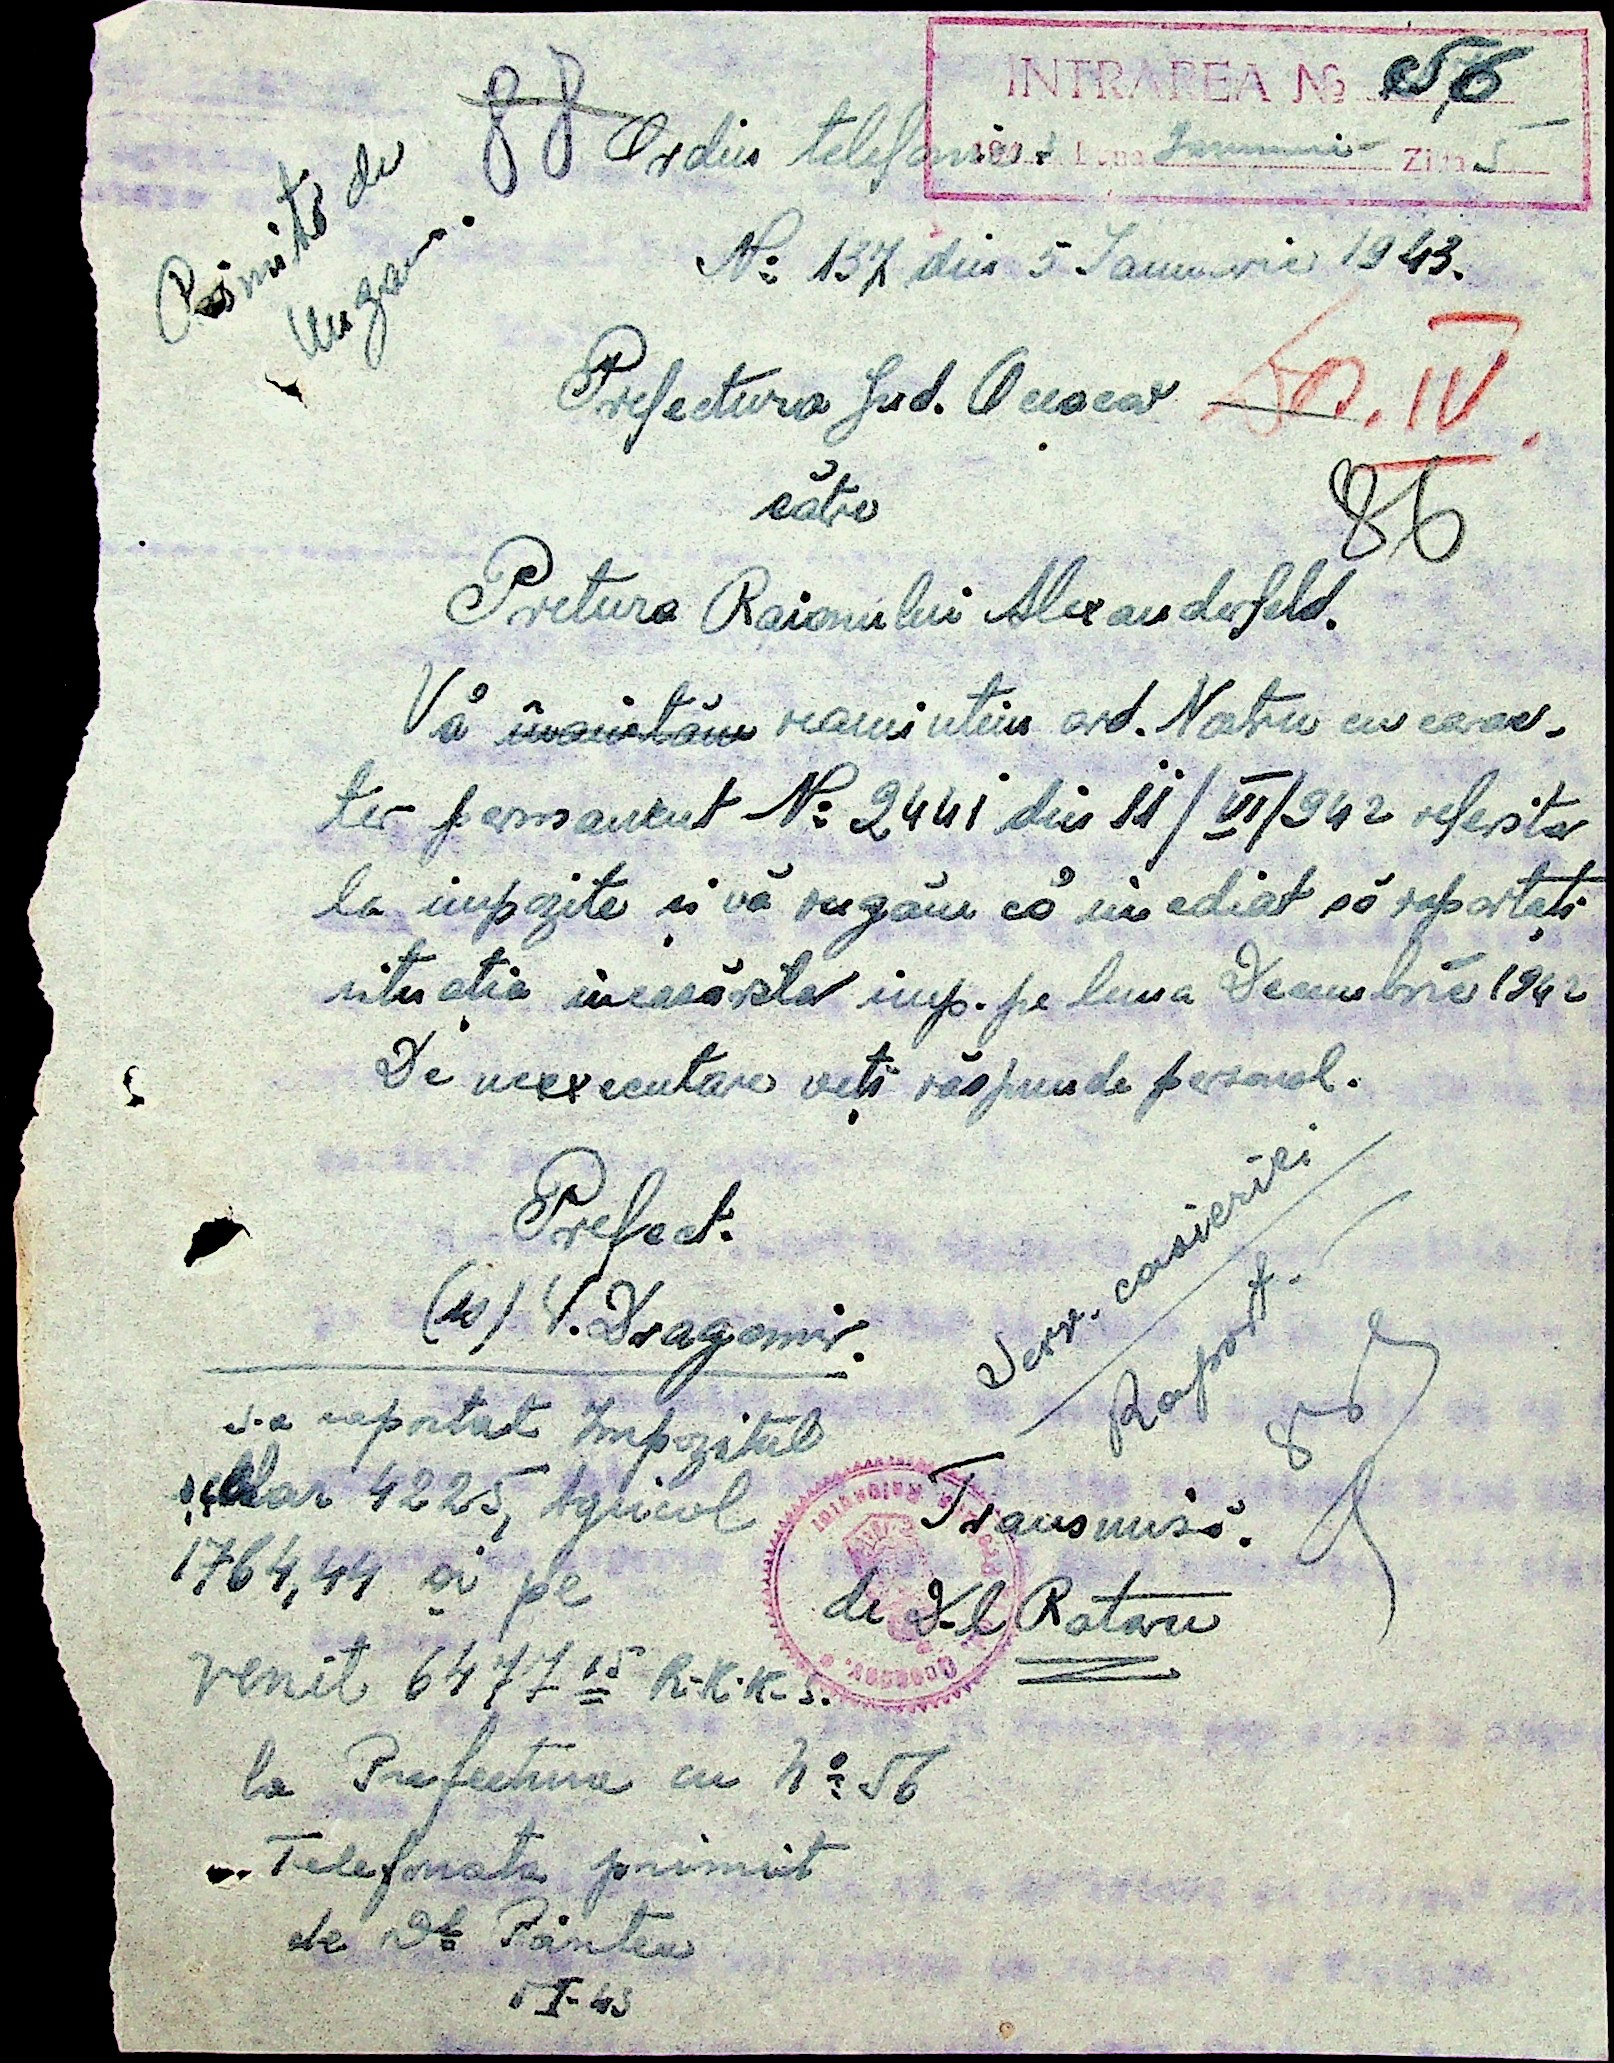 INTRAREA № 56
194 Luna Ianuarie Ziua 5
88
Ordin telefonic
Primită de
Ungar.
№ 137 din 5 Ianuarie 1943.
Prefectura Jud. Oceacov
Dos. IV.
86
către
Pretura Raionului Alexanderfeld.
Vă înaintăm reamintim ord. Nostru cu carac-
ter permanent № 2441 din 11/VI/942 referitor
la impozite și vă rugăm că imediat să raportați
situația incasărilor imp. pe luna Decembrie 1942
De neexecutare veți răspunde personal.
Prefect.
(ss) V. Dragomir.
Serv. casieriei
Raport.
s-a raportat Impozitul
4225, Agricol
1764,44 și pe
venit 6477 15 R.K.K.S.
la Prefectura cu № 56
Telefonata primit
de Dl Pântea
5-I-43
Transmisă.
de D-l Rotaru